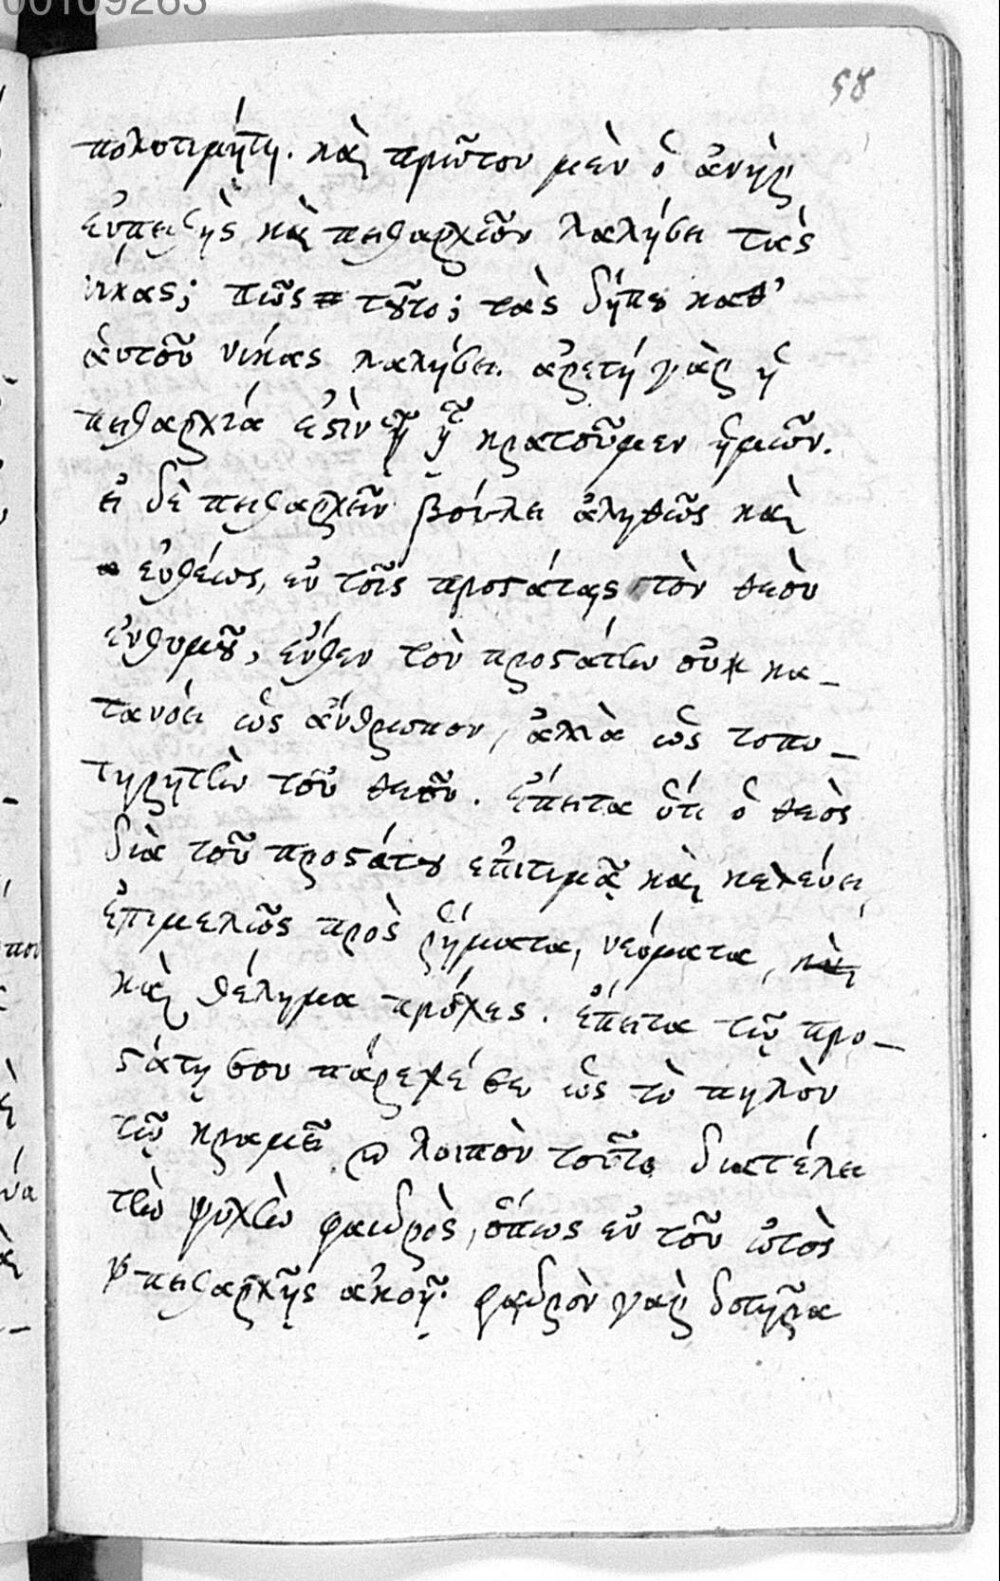 00109263
58
πολυτιμήτη. καὶ πρῶτον μὲν ὁ ἀνὴρ
εὐπειθὴς καὶ πειθαρχῶν λαλήσει τὰς
νίκας; πῶς τοῦτο; τὰς δήπου καθ'
ἑαυτοῦ νίκας λαλήσει. ἀρετὴ γὰρ ἡ
πειθαρχία ἐστὶν ᾗ κρατοῦμεν ἡμῶν.
εἰ δὲ πειθαρχεῖν βούλει ἀληθῶς καὶ
εὐθέως, ἐν τοῖς προστάταις τὸν θεὸν
ἐνθυμοῦ, ἔνθεν τὸν προστάτην οὐκ κα-
τανόει ὡς ἄνθρωπον, ἀλλὰ ὡς τοπο-
τηρητὴν τοῦ θεοῦ. ἔπειτα ὅτι ὁ θεὸς
διὰ τοῦ προστάτου ἐπιτιμᾷ καὶ κελεύει,
ἐπιμελῶς πρὸς ῥήματα, νεύματα, καὶ
καὶ θέλημα πρόσχες. ἔπειτα τῷ προ-
στάτῃ σου πάρεχέ σε ὡς τὸ πηλὸν
τῷ κεραμεῖ λοιπὸν τοῦτο διατέλει
τὴν ψυχὴν φαιδρὸς, ὅπως ἐν τοῦ ὠτὸς
πειθαρχῇς ἀκοῇ. φαιδρὸν γὰρ δοτῆρα